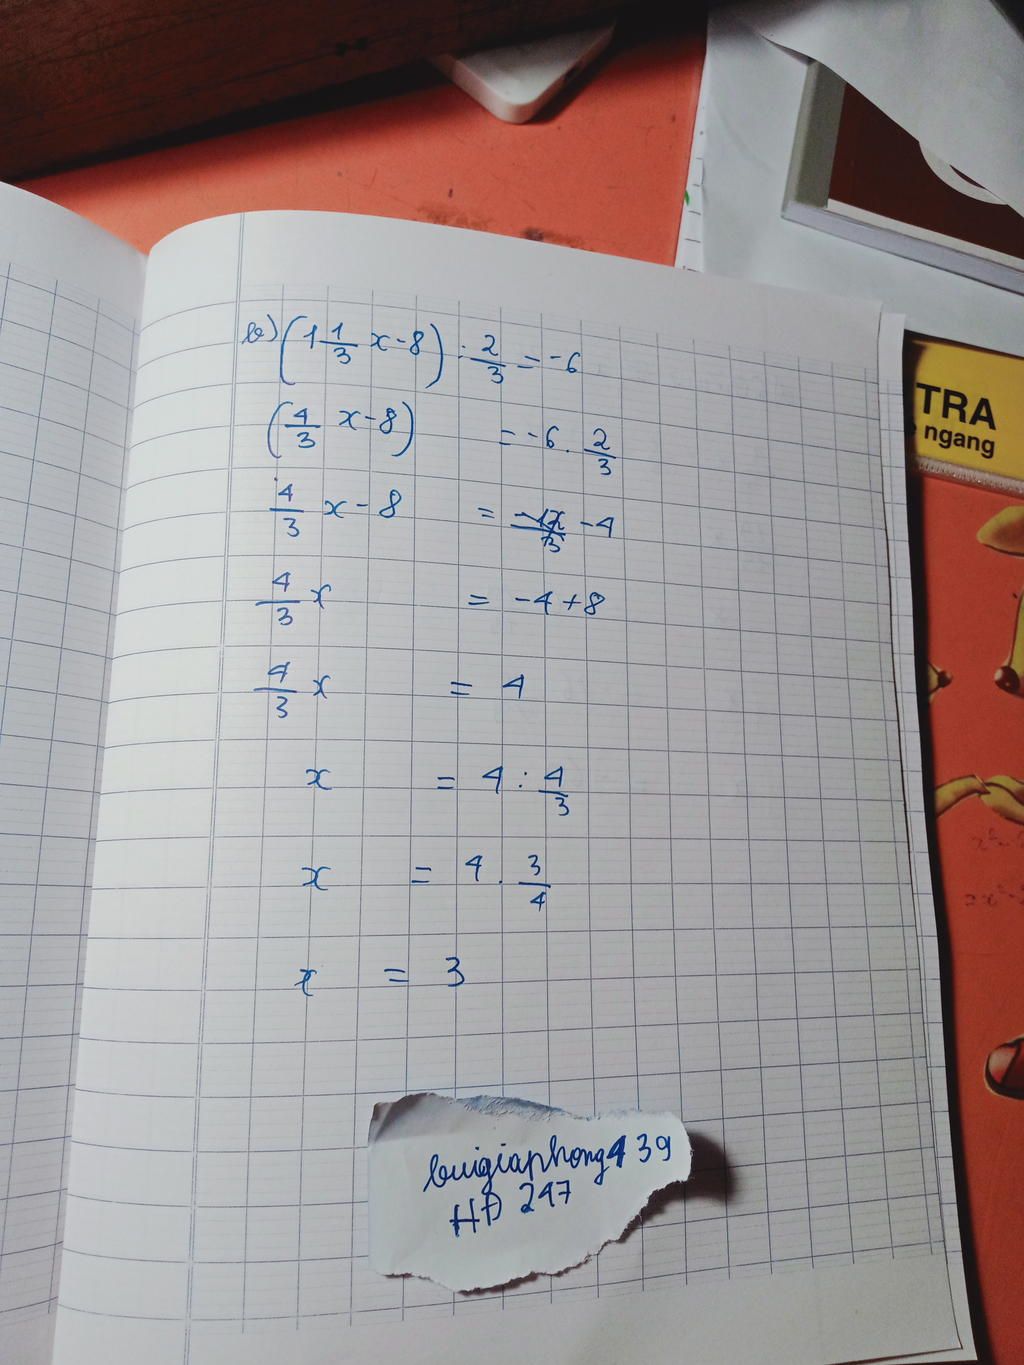 b) (1 1/3 x - 8) : 2/3 = -6
(4/3 x - 8) = -6 . 2/3
4/3 x - 8 = -4
4/3 x = -4 + 8
4/3 x = 4
x = 4 : 4/3
x = 4 . 3/4
x = 3
buigiaphong439
HĐ 247
TRA
ngang